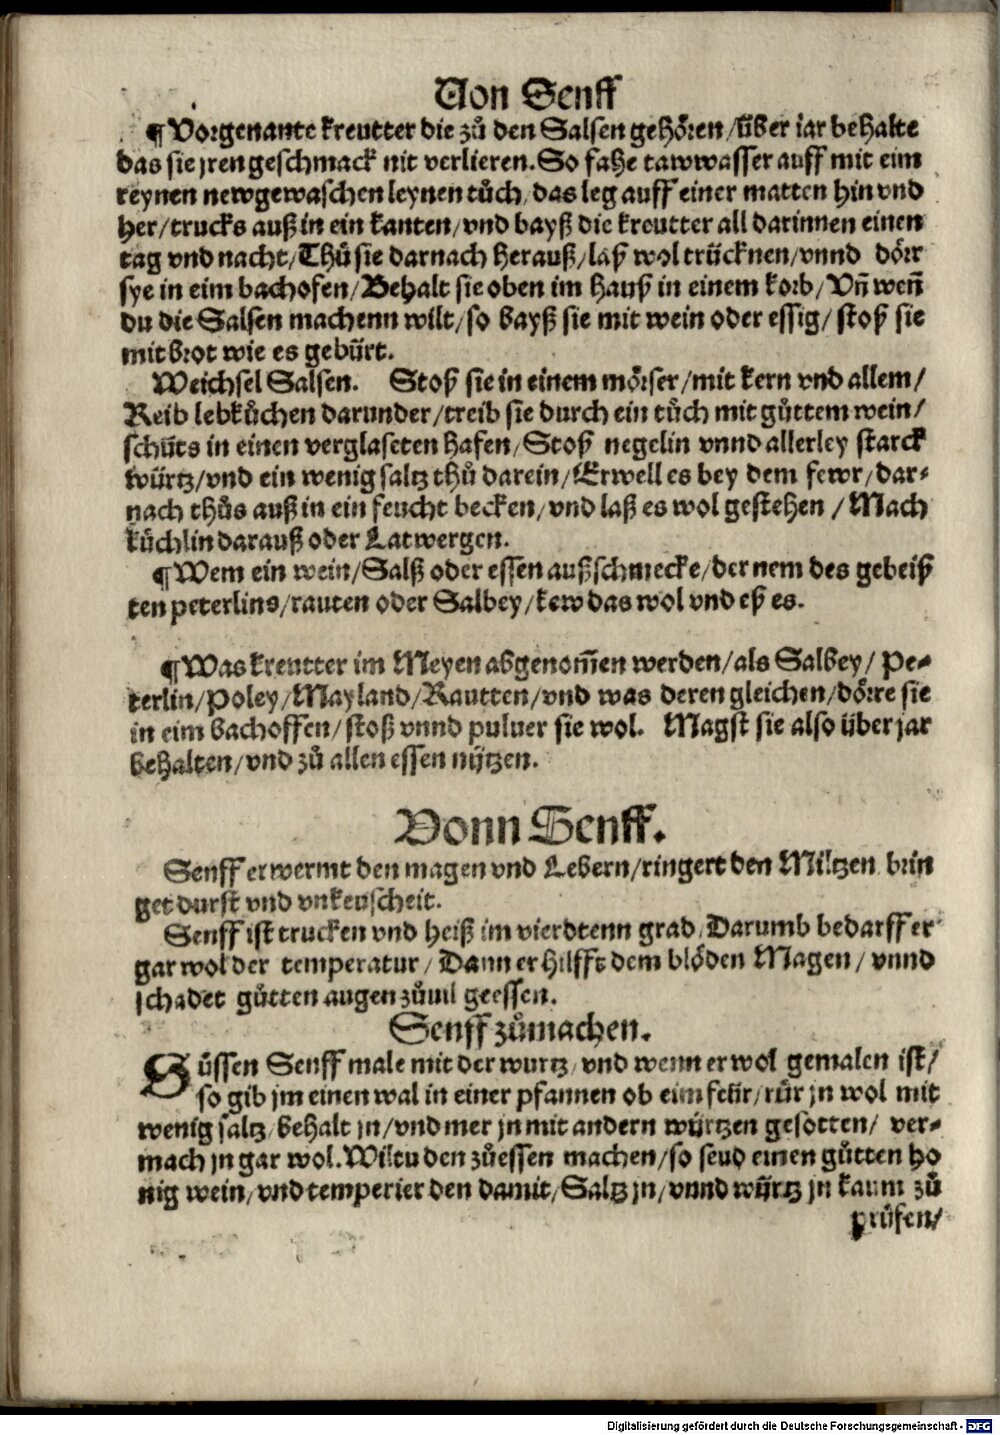 Von Senff
¶ Vorgenante kreutter die zů den Salsen gehören / über iar behalte
das sie jren geschmack nit verlieren. So fahe tawwasser auff mit eim
reynen newgewaschen leynen tůch / das leg auff einer matten hin vnd
her / trucks auß in ein kanten / vnd bayß die kreutter all darinnen einen
tag vnd nacht / Thů sie darnach herauß / laß wol trücknen / vnnd dörr
sye in eim bachofen / Behalt sie oben im hauß in einem korb / Vñ weñ
du die Salsen machenn wilt / so bayß sie mit wein oder essig / stoß sie
mit brot wie es gebürt.
Weichsel Salsen. Stoß sie in einem mörser / mit kern vnd allem /
Reib lebkůchen darunder / treib sie durch ein tůch mit gůttem wein /
schüts in einen verglaseten hafen / Stoß negelin vnnd allerley starck
würtz / vnd ein wenig saltz thů darein / Erwell es bey dem fewr / dar-
nach thůs auß in ein feucht becken / vnd laß es wol gestehen / Mach
küchlin darauß oder Latwergen.
¶ Wem ein wein / Salß oder essen außschmecke / der nem des gebeiß
ten peterlins / rauten oder Salbey / kew das wol vnd eß es.
¶ Was kreutter im Meyen abgenom̃en werden / als Salbey / Pe-
terlin / Poley / Mayland / Rautten / vnd was deren gleichen / dörre sie
in eim bachoffen / stoß vnnd puluer sie wol. Magst sie also über jar
behalten / vnd zů allen essen nützen.
Vonn Senff.
Senff erwermt den magen vnd Lebern / ringert den Miltzen brin
get durst vnd vnkeuscheit.
Senff ist trucken vnd heiß im vierdtenn grad / Darumb bedarff er
gar wol der temperatur / Dann er hilfft dem blöden Magen / vnnd
schadet gůtten augen zůuil geessen.
Senff zůmachen.
Süssen Senff male mit der wurtz / vnd wenn er wol gemalen ist /
so gib jm einen wal in einer pfannen ob eim feür / rür jn wol mit
wenig saltz / behalt jn / vnd mer jn mit andern würtzen gesotten / ver-
mach jn gar wol. Wiltu den zůessen machen / so seud einen gůtten ho
nig wein / vnd temperier den damit / Saltz jn / vnnd würtz jn kaum zů
prüfen /
Digitalisierung gefördert durch die Deutsche Forschungsgemeinschaft - DFG